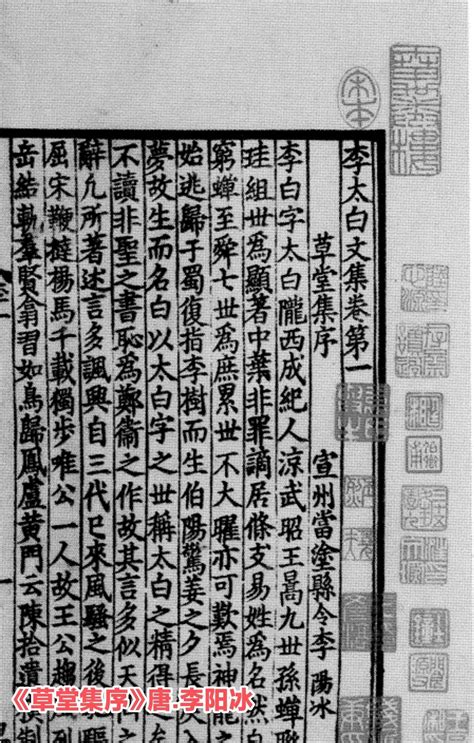 宋本
李太白文集卷第一
草堂集序 宣州當塗縣令李陽冰
李白字太白隴西成紀人涼武昭王暠九丗孫蟬聯
珪組丗爲顯著中葉非罪謫居條支易姓爲名然
窮蟬至舜七丗爲庶累丗不大曜亦可歎焉神龍
始逃歸于蜀復指李樹而生伯陽驚姜之夕長
夢故生而名白以太白字之丗稱太白之精得
不讀非聖之書恥爲鄭衞之作故其言多似天
辭凢所著述言多諷興自三代已來風騷之後
屈宋鞭撻楊馬千載獨步唯公一人故王公趨
岳結軌羣賢翕習如鳥歸鳳盧黃門云陳拾遺
《草堂集序》唐.李阳冰